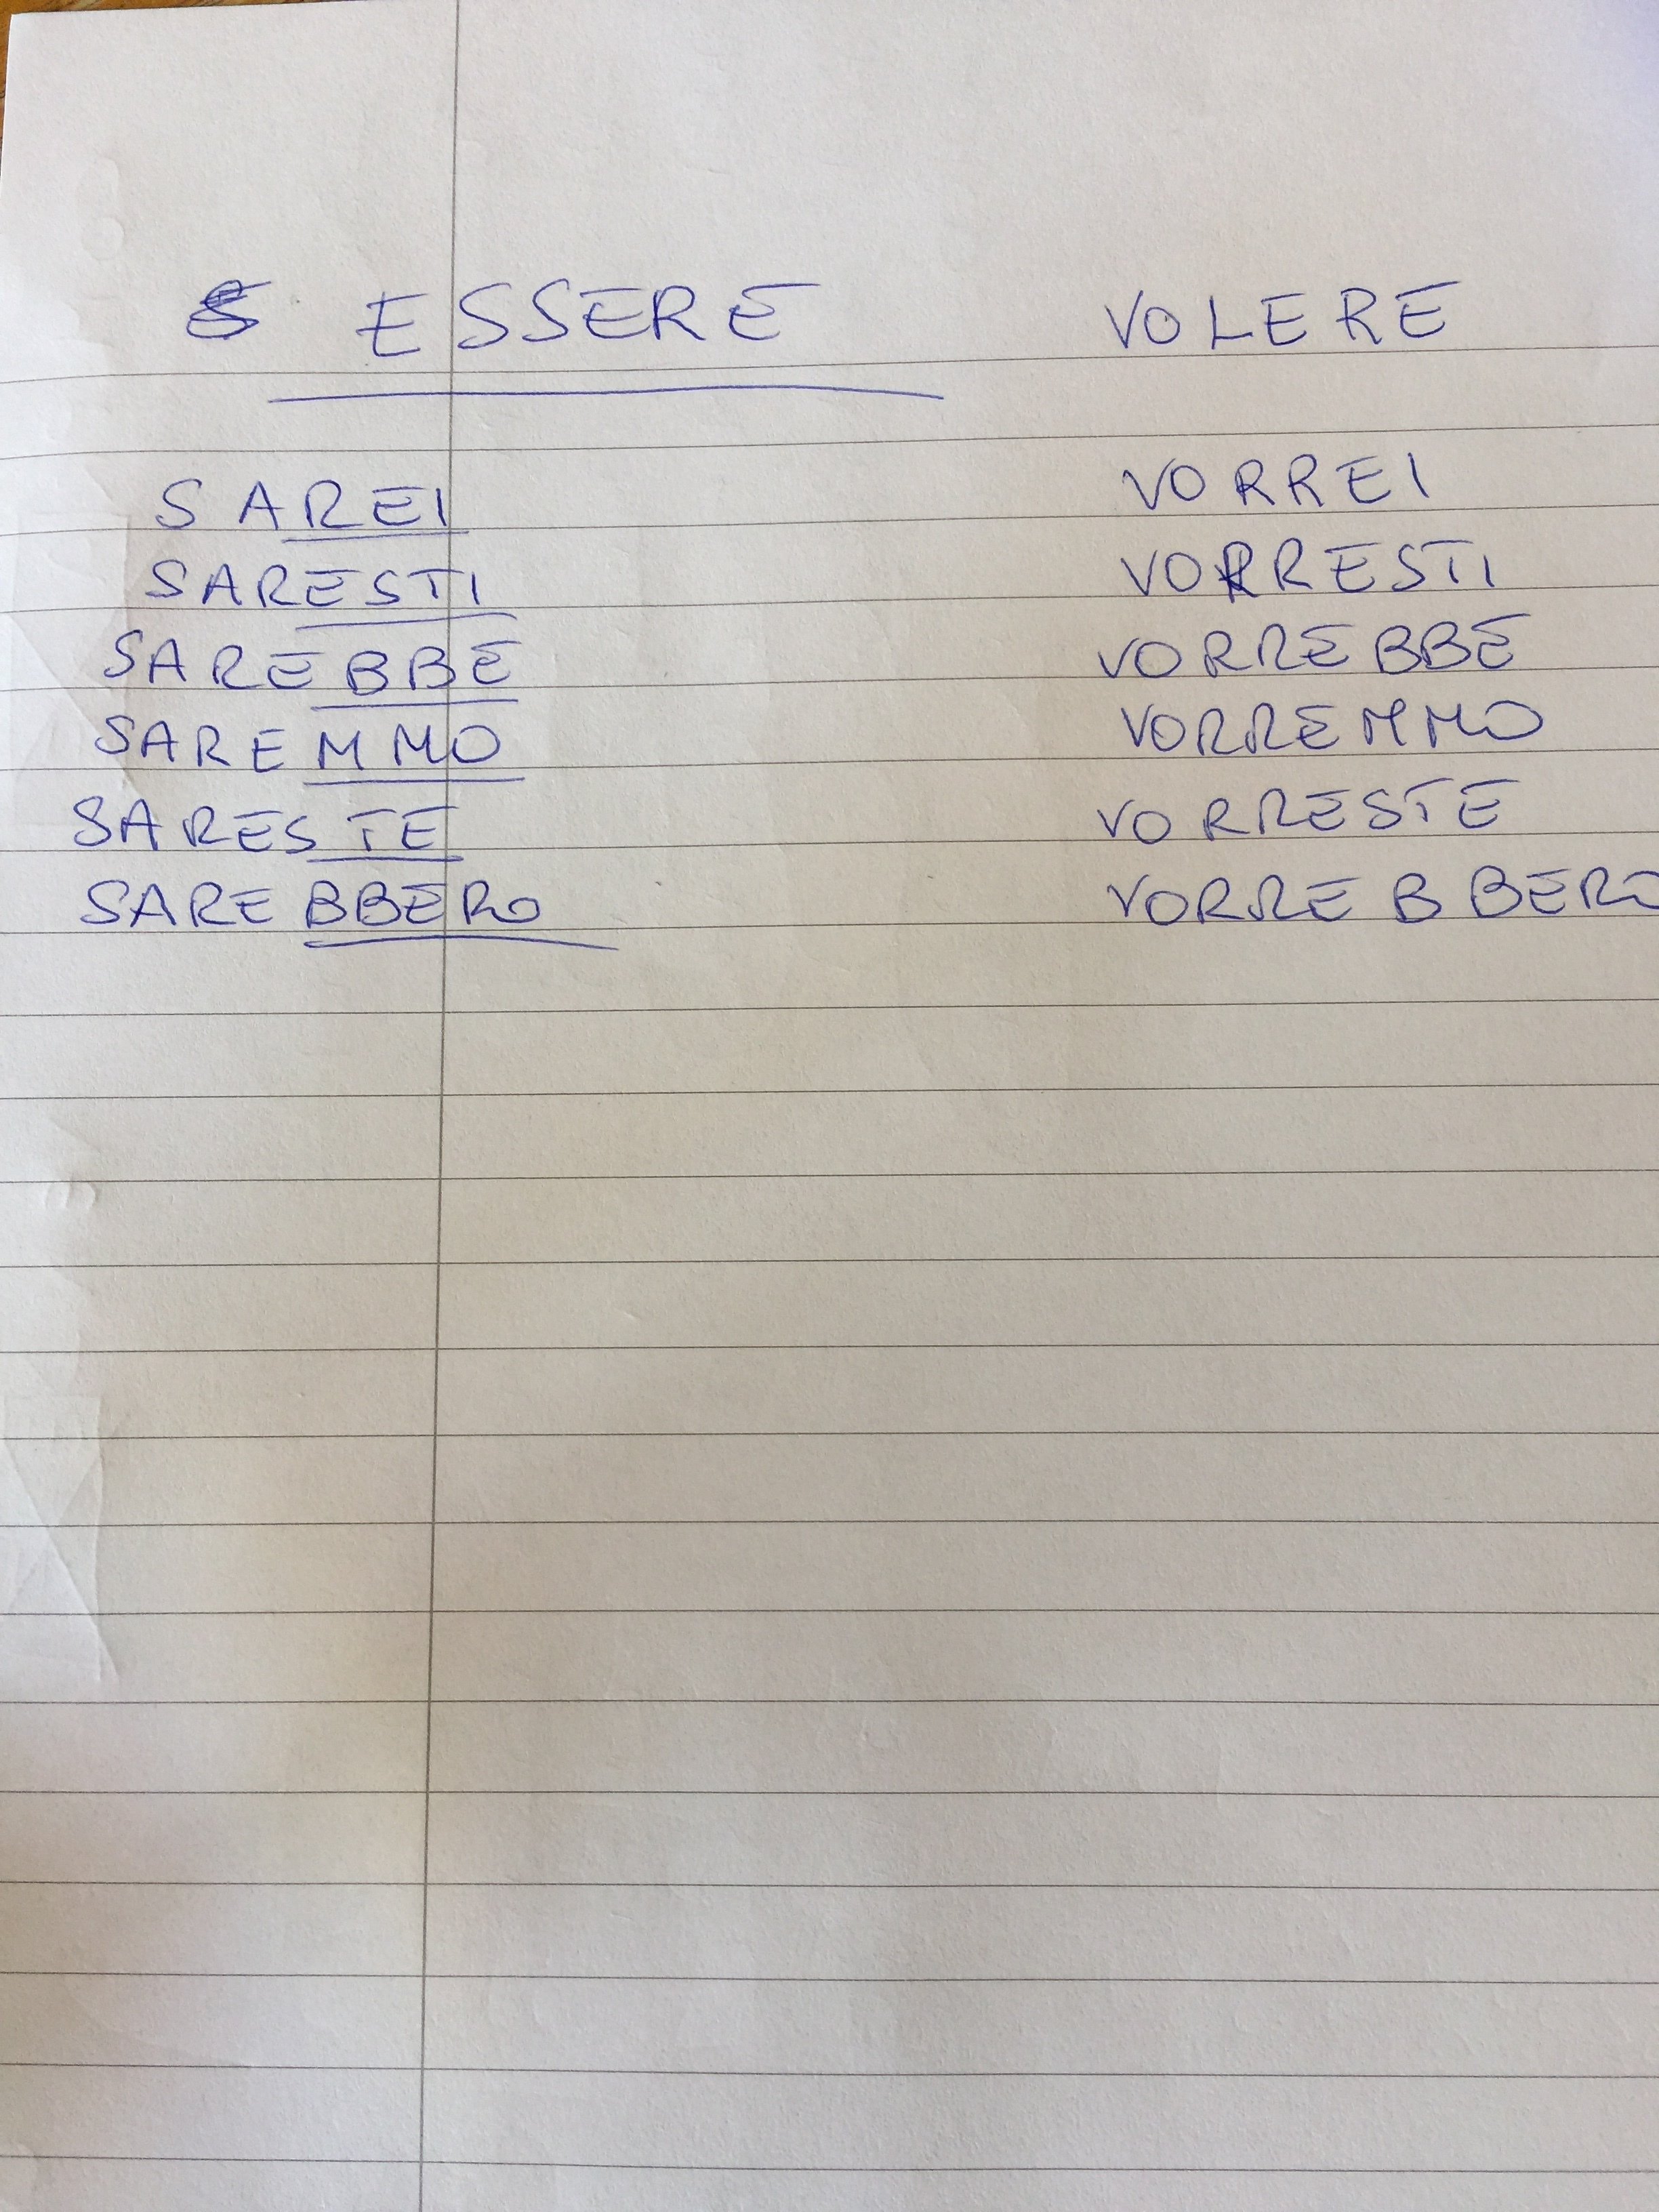 ESSERE VOLERE
SAREI VORREI
SARESTI VORRESTI
SAREBBE VORREBBE
SAREMMO VORREMMO
SARESTE VORRESTE
SAREBBERO VORREBBERO